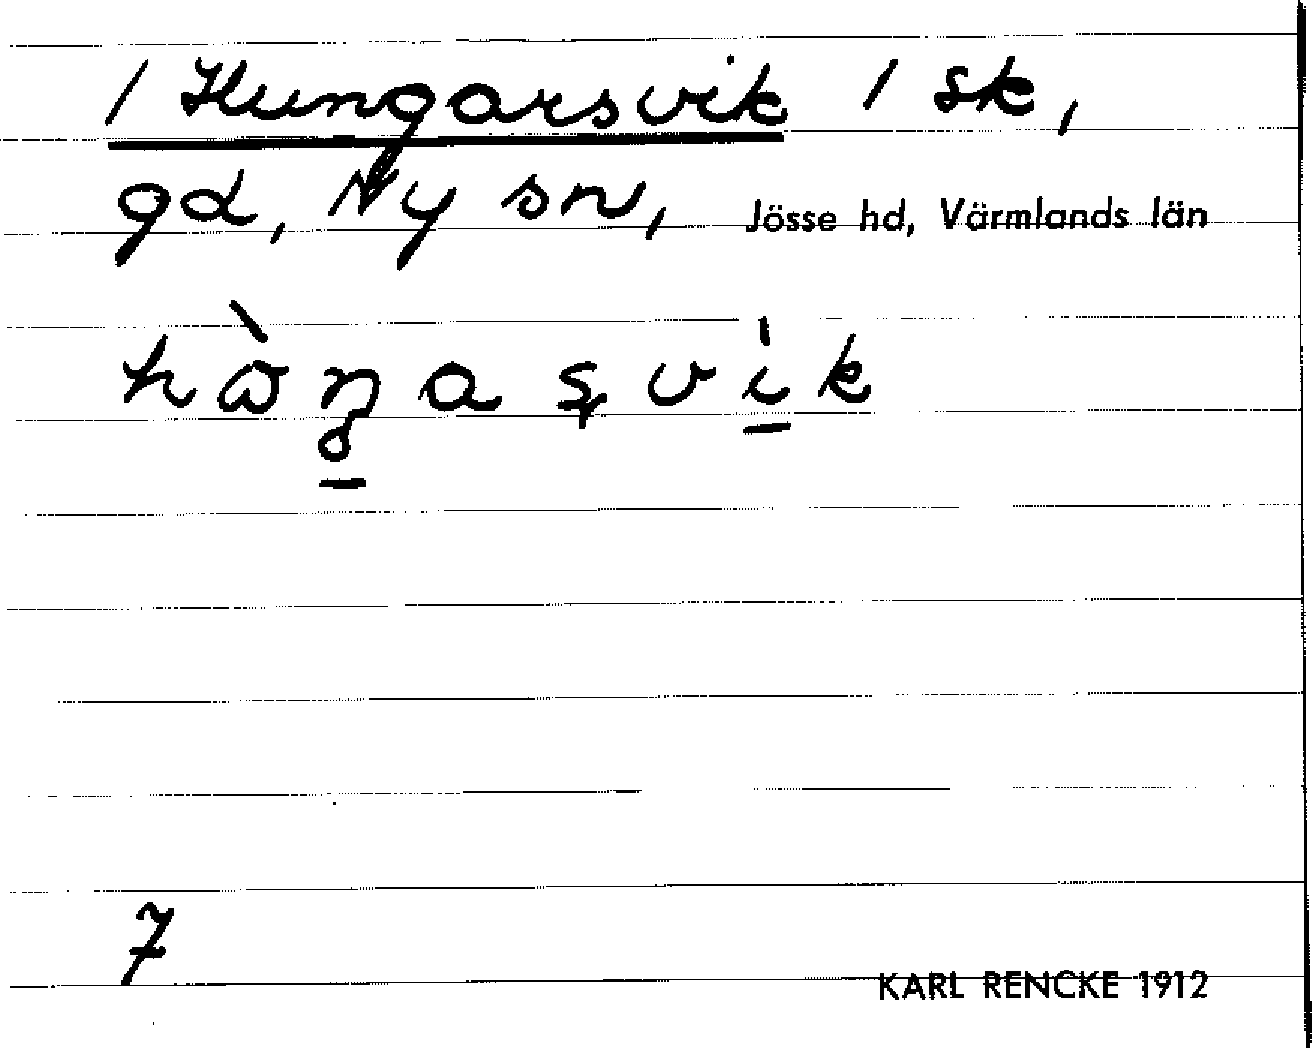 / Hungarsvik / sk,
gd, Ny sn, Jösse hd, Värmlands län
hὼŋasvik
7
KARL RENCKE 1912